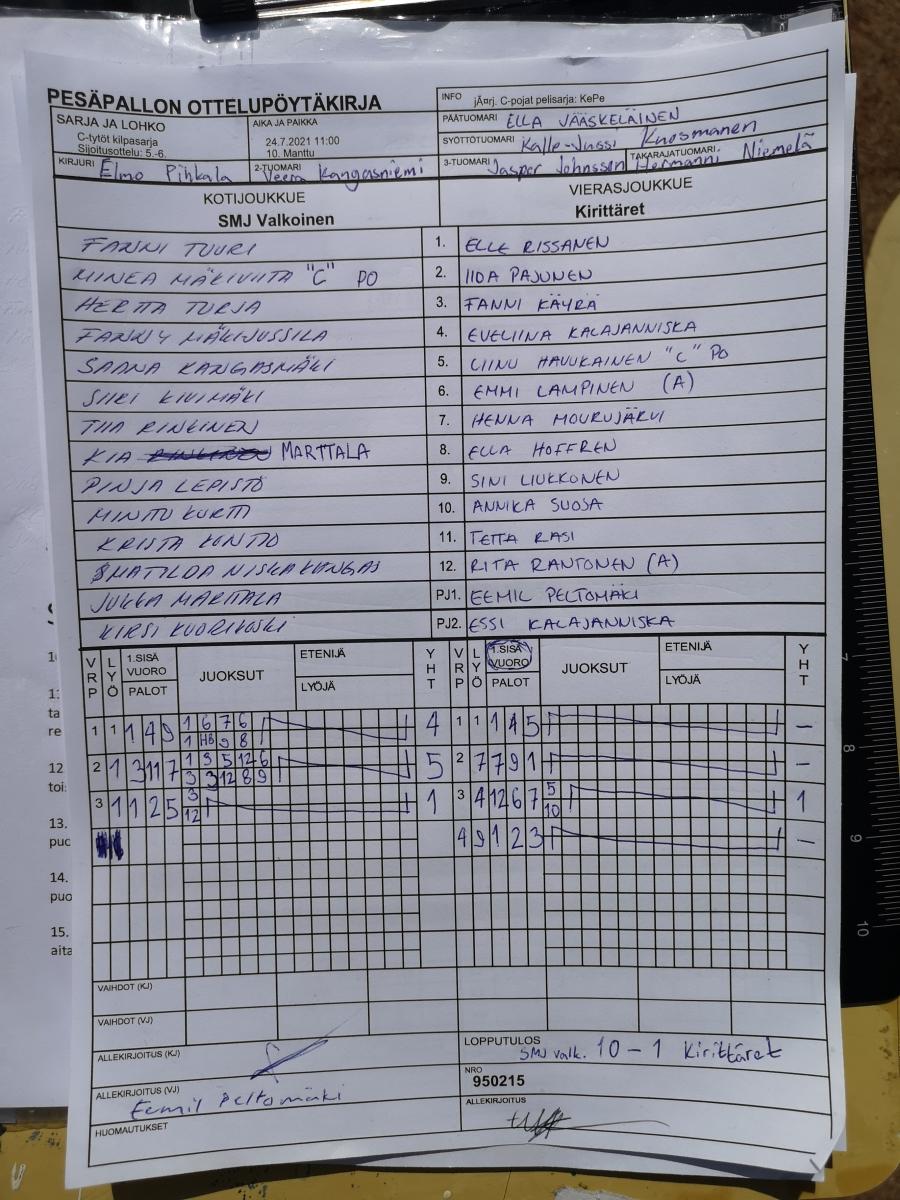 PESÄPALLON OTTELUPÖYTÄKIRJA
INFO jÃ¤rj. C-pojat pelisarja: KePe
SARJA JA LOHKO
C-tytöt kilpasarja
Sijoitusottelu: 5.-6.
AIKA JA PAIKKA
24.7.2021 11:00
10. Manttu
PÄÄTUOMARI ELLA JÄÄSKELÄINEN
SYÖTTÖTUOMARI Kalle-Jussi Kuosmanen
KIRJURI Elmo Pihkala
2-TUOMARI Veera Kangasniemi
3-TUOMARI Jasper Johnsson
TAKARAJATUOMARI Hermanni Niemelä
KOTIJOUKKUE
SMJ Valkoinen
VIERASJOUKKUE
Kirittäret
FANNI TUURI 1. ELLE RISSANEN
MINEA MÄKIVIITA "C" PO 2. IIDA PAJUNEN
HERTTA TURJA 3. FANNI KÄYRÄ
FANNY MÄKIJUSSILA 4. EVELIINA KALAJANNISKA
SAANA KANGASMÄKI 5. LIINU HAUKKAINEN "C" PO
SIIRI KIVIMÄKI 6. EMMI LAMPINEN (A)
TIIA RINKINEN 7. HENNA MOURUJÄRVI
KIA MARTTALA 8. ELLA HOFFREN
PINJA LEPISTÖ 9. SINI LIUKKONEN
MINTTU KURTTI 10. ANNIKA SUOJA
KRISTA KONTIO 11. TETTA RASI
MATILDA NISKAKANGAS 12. RITA RANTONEN (A)
JUKKA MARTTALA PJ1. EEMIL PELTOMÄKI
KIRSI KUORIKOSKI PJ2. ESSI KALAJANNISKA
VRP LYÖ 1.SISÄ VUORO PALOT JUOKSUT ETENIJÄ LYÖJÄ YHT VRP LYÖ 1.SISÄ VUORO PALOT JUOKSUT ETENIJÄ LYÖJÄ YHT
1 1 1 4 9 1 6 7 6 4 1 1 1 4 5 –
1 HB 9 8
2 1 3 11 7 1 9 5 12 6 5 2 7 7 9 1 –
3 3 12 8 9
3 1 1 2 5 3 1 3 4 12 6 7 5 1
12 10
4 9 1 2 3 –
VAIHDOT (KJ)
VAIHDOT (VJ)
ALLEKIRJOITUS (KJ)
LOPPUTULOS
SMJ valk. 10 – 1 Kirittäret
NRO
950215
ALLEKIRJOITUS (VJ)
Eemil Peltomäki
ALLEKIRJOITUS
HUOMAUTUKSET
12.
13.
14.
15.
7
8
9
10